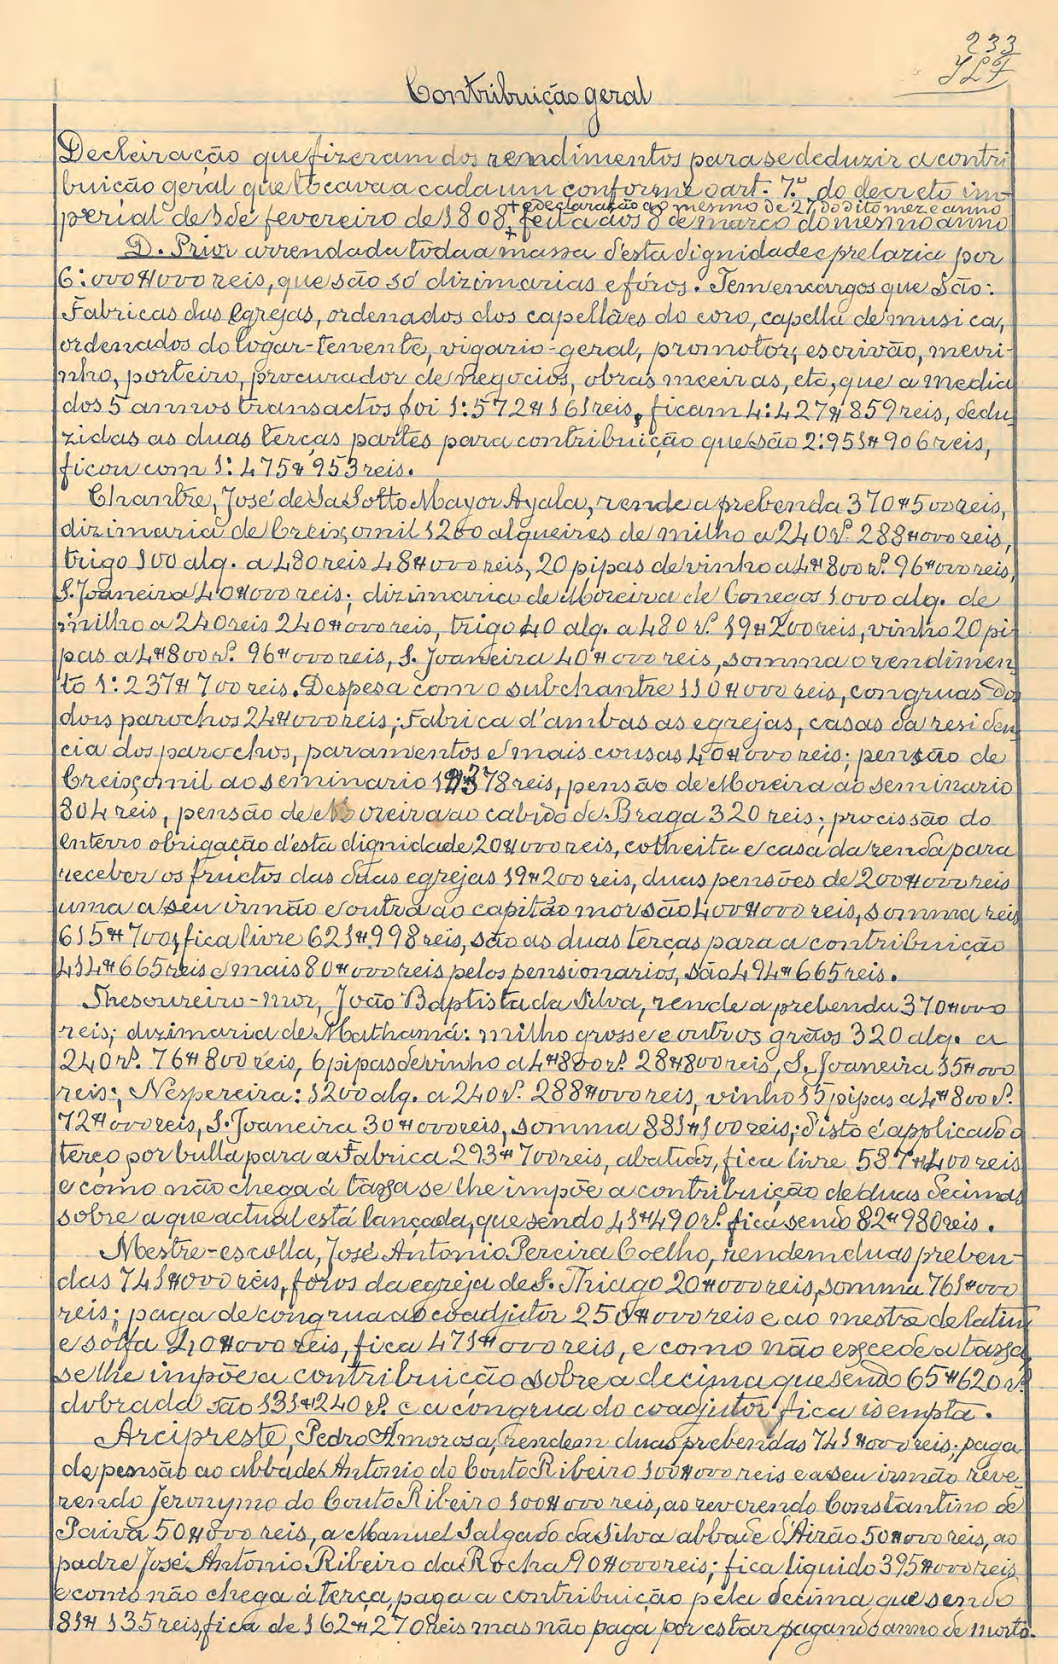 233
JLF
Contribuição geral
Decleiração que fizeram dos rendimentos para se deduzir a contri
buição geral que tocava a cada um conforme o art. 7.º do decreto im-
+ e declaração ao mesmo de 27 do dito mez e anno
perial de 1 de fevereiro de 1808 + feita aos 8 de março do mesmo anno
D. Prior arrendada toda a massa d'esta dignidade e prelazia por
6:000#000 reis, que são só dizimarias e fóros. Tem encargos que são:
Fabricas das egrejas, ordenados dos capellães do coro, capella de musica,
ordenados do logar-tenente, vigario-geral, promotor, escrivão, meiri-
nho, porteiro, procurador de negocios, obras meeiras, etc, que a media
dos 5 annos transactos foi 1:572#161 reis, ficam 4:427#859 reis, dedu-
zidas as duas terças partes para contribuição que são 2:951#906 reis,
ficou com 1:475#953 reis.
Chantre, José de Sa Sotto Mayor Ayala, rende a prebenda 370#500 reis,
dizimaria de Creixomil 1200 alqueires de milho a 240 r.s 288#000 reis,
trigo 100 alq. a 480 reis 48#000 reis, 20 pipas de vinho a 4#800 r.s 96#000 reis,
S. Joaneira 40#000 reis; dizimaria de Moreira de Conegos 1000 alq. de
milho a 240 reis 240#000 reis, trigo 40 alq. a 480 r.s 19#200 reis, vinho 20 pi-
pas a 4#800 r.s 96#000 reis, S. Joaneira 40#000 reis, somma o rendimen-
to 1:237#700 reis. Despesa com o subchantre 110#000 reis, congruas dos
dois parochos 24#000 reis; Fabrica d'ambas as egrejas, casas da residen-
cia dos parochos, paramentos e mais cousas 40#000 reis; pensão de
Creixomil ao seminario 1#378 reis, pensão de Moreira ao seminario
804 reis, pensão de Moreira ao cabido de Braga 320 reis; procissão do
enterro obrigação d'esta dignidade 20#000 reis, colheita e casa da renda para
receber os fructos das duas egrejas 19#200 reis, duas pensões de 200#000 reis
uma a seu irmão e outra ao capitão mor são 400#000 reis, somma reis
615#700, fica livre 621#998 reis, são as duas terças para a contribuição
414#665 reis e mais 80#000 reis pelos pensionarios, são 494#665 reis.
Thesoureiro-mor, João Baptista da Silva, rende a prebenda 370#000
reis; dizimaria de Mathamá: milho grosso e outros grãos 320 alq. a
240 r.s 76#800 reis, 6 pipas de vinho a 4#800 r.s 28#800 reis, S. Joaneira 15#000
reis; Nespereira: 1200 alq. a 240 r.s 288#000 reis, vinho 15 pipas a 4#800 r.s
72#000 reis, S. Joaneira 30#000 reis, somma 881#100 reis; d'isto é applicado o
terço por bulla para a Fabrica 293#700 reis, abatidos, fica livre 587#400 reis
e como não chega á taxa se lhe impõe a contribuição de duas decimas
sobre a que actual está lançada, que sendo 41#490 r.s fica sendo 82#980 reis.
Mestre-escolla, José Antonio Pereira Coelho, rendem duas preben-
das 741#000 reis, fóros da egreja de S. Thiago 20#000 reis, somma 761#000
reis; paga de congrua ao coadjutor 250#000 reis e ao mestre de latim
e solfa 40#000 reis, fica 471#000 reis, e como não excede a taxa,
se lhe impõe a contribuição sobre a decima que sendo 65#620 r.s
dobrada são 131#240 r.s e a congrua do coadjutor fica isempta.
Arcipreste, Pedro Amorosa, rendem duas prebendas 741#000 reis; paga
de pensão ao abbade Antonio do Couto Ribeiro 100#000 reis e a seu irmão reve-
rendo Jeronymo do Couto Ribeiro 100#000 reis, ao reverendo Constantino de
Paiva 50#000 reis, a Manuel Salgado da Silva abbade d'Airão 50#000 reis, ao
padre José Antonio Ribeiro da Rocha 90#000 reis; fica liquido 395#000 reis
e como não chega á terça, paga a contribuição pela decima que sendo
81#135 reis, fica de 162#270 reis mas não paga por estar pagando anno de morto.